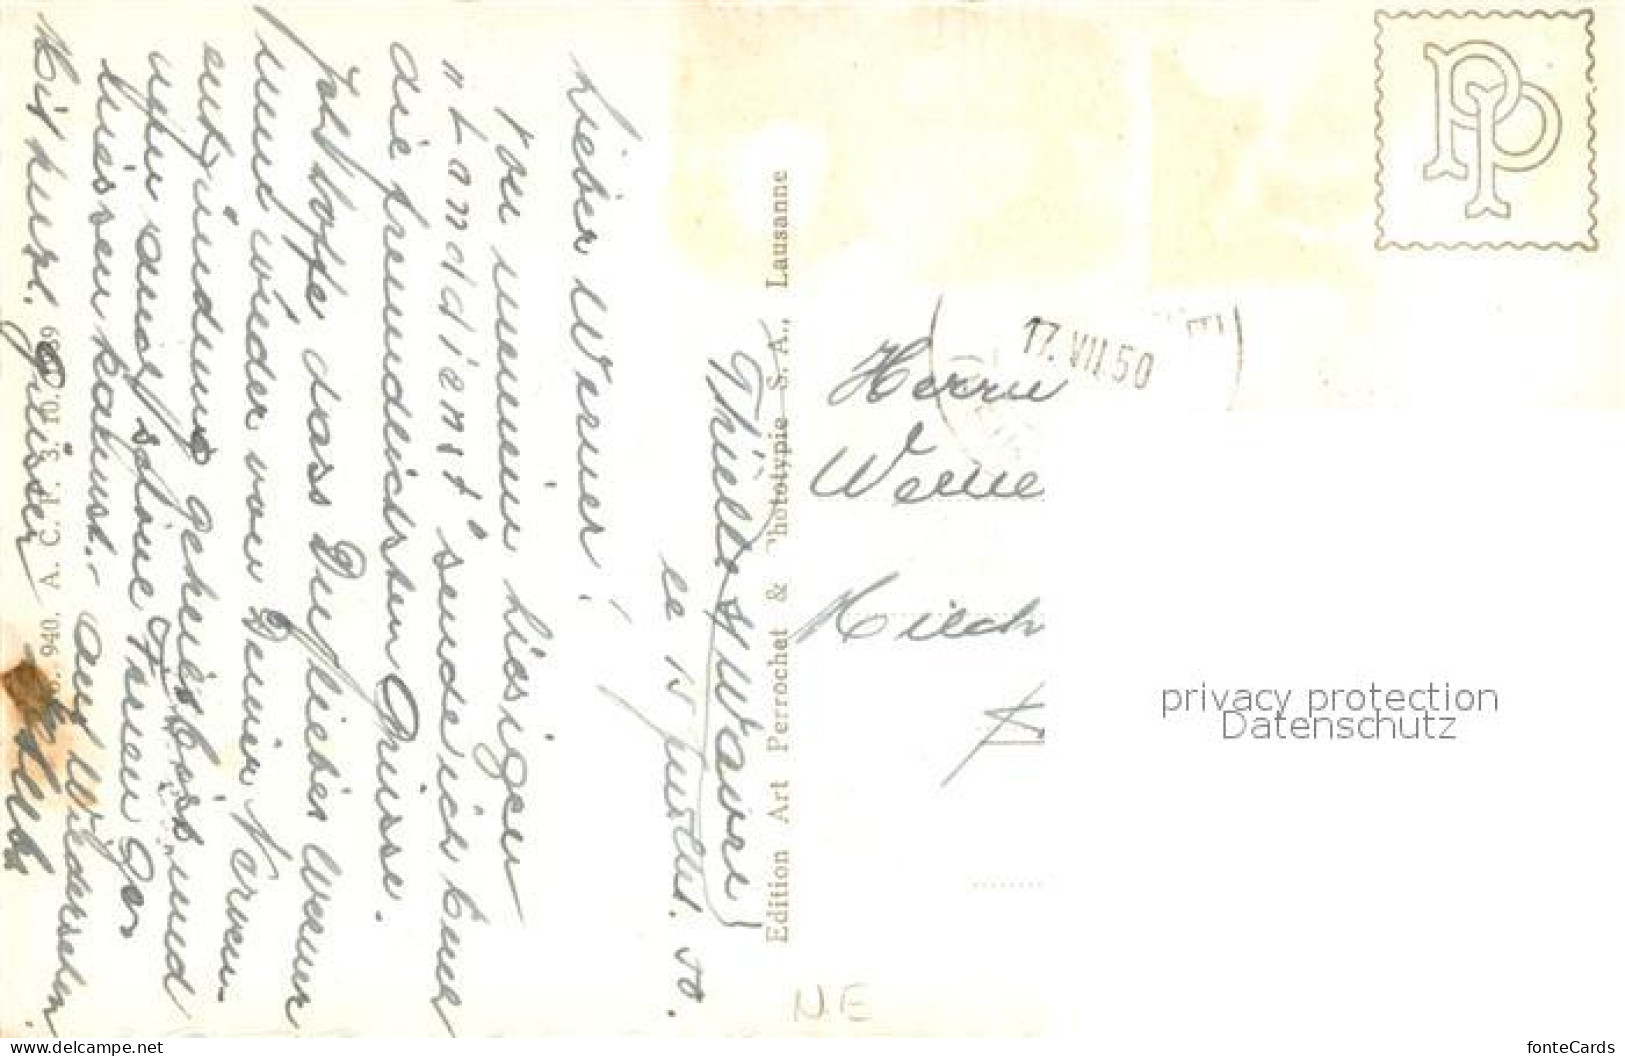 Thielle s/ Wavre
le 15 juillet. 50.
Lieber Werner!
Von meinem hiesigen
"Landdienst" sende ich Euch
die freundlichsten Grüsse.
Ich hoffe, dass Du, lieber Werner
nun wieder von Deiner Nerven-
entzündung geheilt bist und
schöne Ferien
kannst. - Auf Wiedersehen.
Mit herzl. Grüssen
Edition Art Perrochet & Phototypie S. A., Lausanne
940. A. C. P. 3. 10. 39
PP
17. VII. 50
Herrn
Werne
Milch
N.E
privacy protection
Datenschutz
https://www.delcampe.net
fonteCards